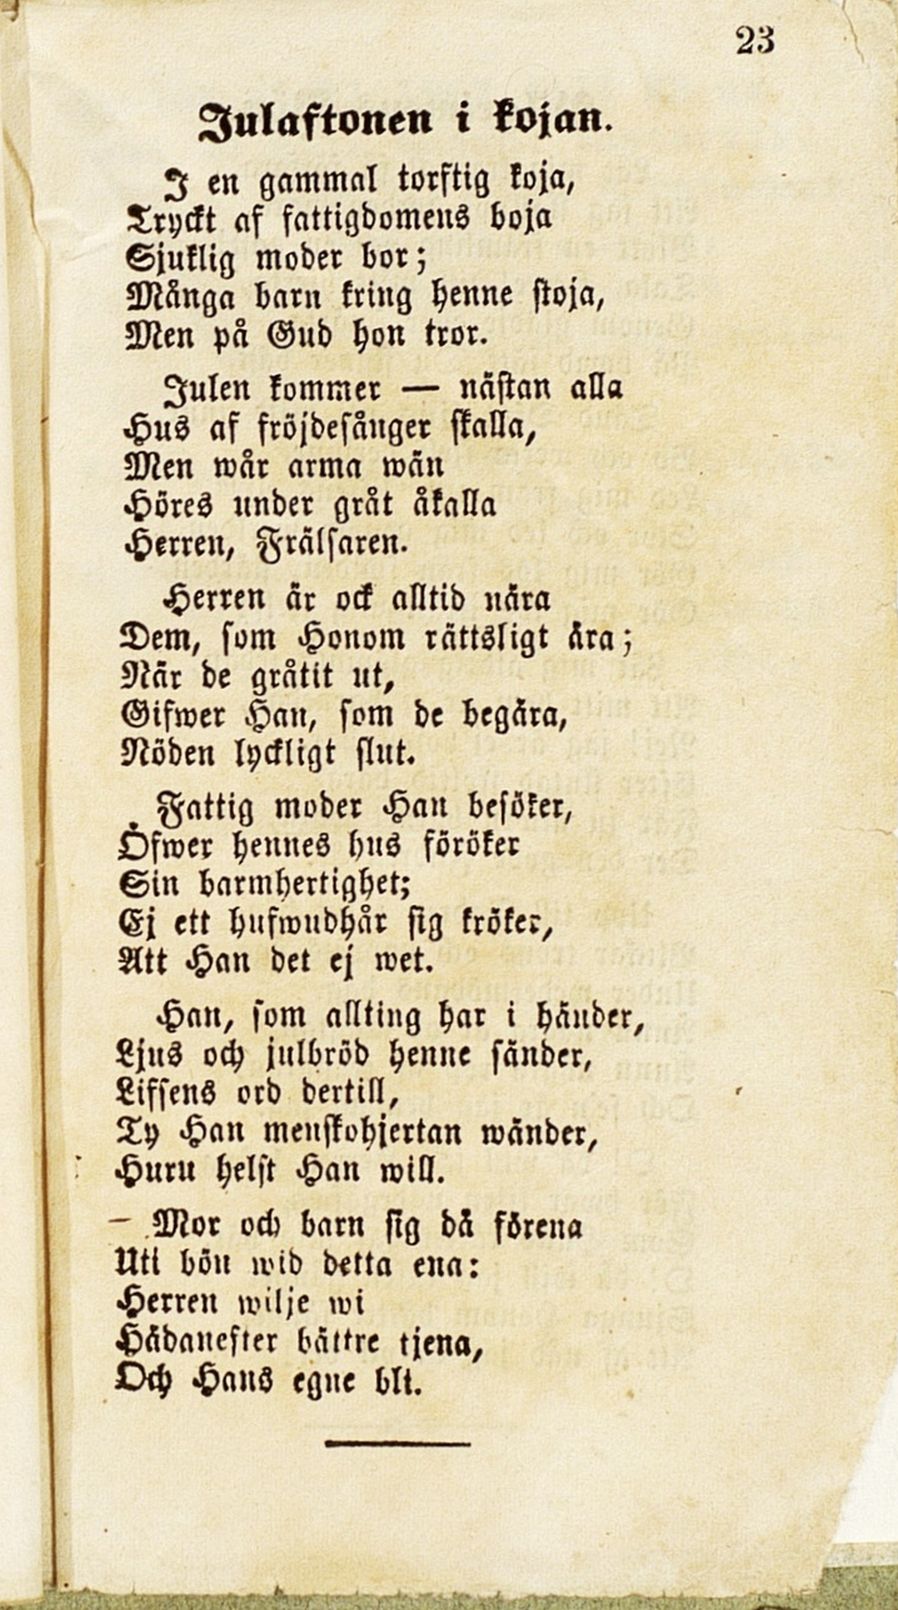 23
Julaftonen i kojan.
I en gammal torftig koja,
Tryckt af fattigdomens boja
Sjuklig moder bor;
Många barn kring henne stoja,
Men på Gud hon tror.
Julen kommer — nästan alla
Hus af fröjdesånger skalla,
Men wår arma wän
Höres under gråt åkalla
Herren, Frälsaren.
Herren är ock alltid nära
Dem, som Honom rättsligt ära;
När de gråtit ut,
Gifwer Han, som de begära,
Nöden lyckligt slut.
Fattig moder Han besöker,
Öfwer hennes hus föröker
Sin barmhertighet;
Ej ett hufwudhår sig kröker,
Att Han det ej wet.
Han, som allting har i händer,
Ljus och julbröd henne sänder,
Lifsens ord dertill,
Ty Han menskohjertan wänder,
Huru helst Han will.
– Mor och barn sig då förena
Uti bön wid detta ena:
Herren wilje wi
Hädanefter bättre tjena,
Och Hans egne bli.